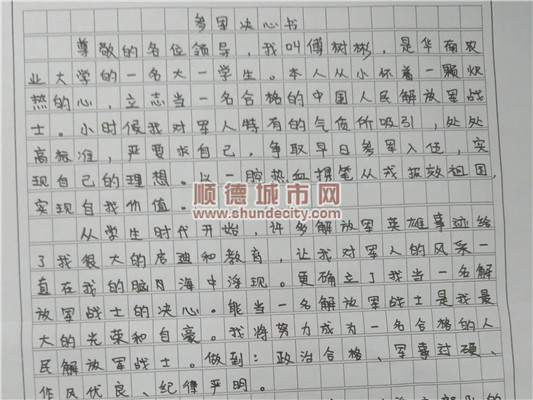 参军决心书
尊敬的各位领导，我叫傅树彬，是华南农
业大学的一名大一学生。本人从小怀着一颗炽
热的心，立志当一名合格的中国人民解放军战
士。小时候我对军人特有的气质所吸引，处处
高标准，严要求自己，争取早日参军入伍，实
现自己的理想。以一腔热血携笔从戎报效祖国，
实现自我价值。
顺德城市网
www.shundecity.com
从学生时代开始，许多解放军英雄事迹给
了我很大的启迪和教育，让我对军人的风采一
直在我的脑海中浮现。更确立了我当一名解
放军战士的决心。能当一名解放军战士是我最
大的光荣和自豪。我将努力成为一名合格的人
民解放军战士。做到：政治合格、军事过硬、
作风优良、纪律严明。